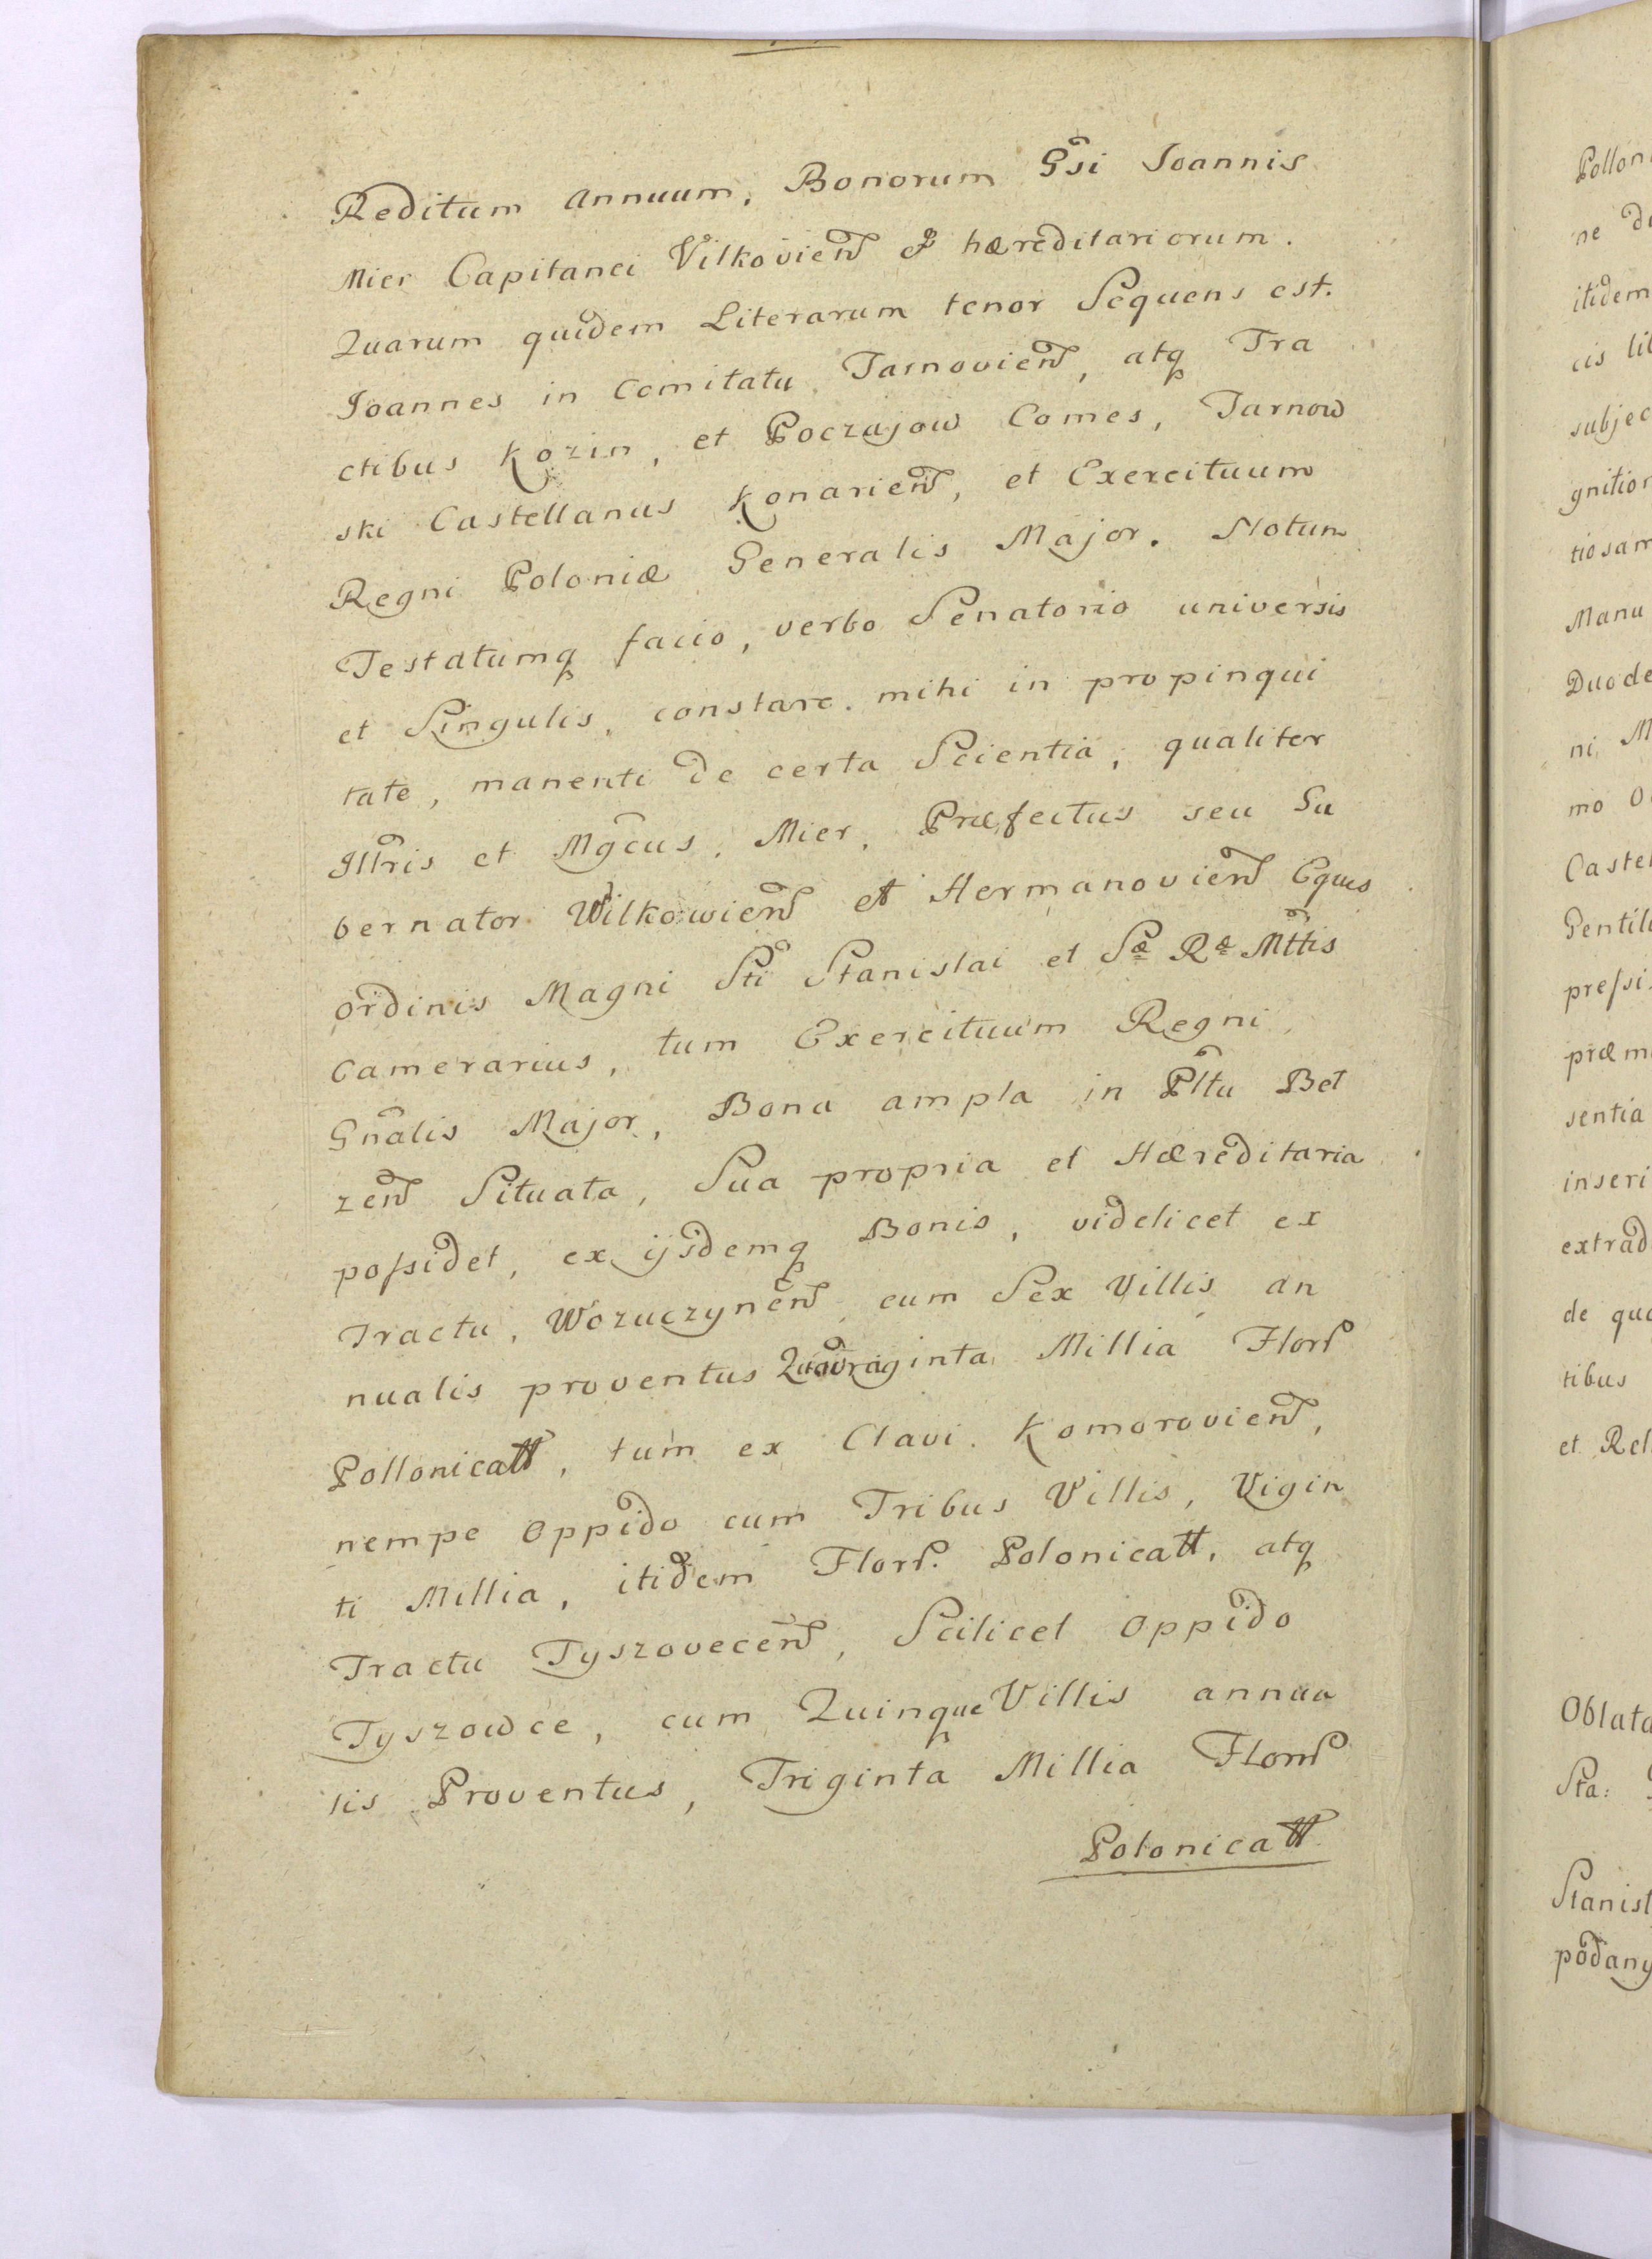 Reditum annuum, Bonorum Gsi Joannis
Mier Capitanei Vilkovien̄ & hæreditariorum.
Quarum quidem Literarum tenor Sequens est.
Joannes in Comitatu Tarnovien̄, atq Tra
ctibus Kozin, et Poczajow Comes, Tarnow
ski Castellanus Konarien̄, et Exercituum
Regni Poloniæ Generalis Major. Notum
Testatumq facio, verbo Senatorio universis
et Singulis, constare mihi in propinqui
tate, manenti de certa Scientia, qualiter
Illris et Mgcus, Mier, Præfectus seu Gu
bernator Wilkowien̄ et Hermanovien̄ Eques
ordinis Magni Sti Stanislai et Sæ Ræ Mttis
Camerarius, tum Exercituum Regni
Gnalis Major, Bona ampla in Pltu Bel
zen̄ Situata, Sua propria et Hæreditaria
possidet, ex ijsdemq Bonis, videlicet ex
Tractu, Wozuczynen̄ cum Sex Villis an
nualis proventus Quadraginta Millia Flor̄
Pollonicall, tum ex Clavi Komorovien̄,
nempe Oppido cum Tribus Villis, Vigin
ti Millia, itidem Flor̄. Polonicall, atq
Tractu Tyszovecen̄, Scilicet Oppido
Tyszowce, cum Quinque Villis annua
lis Proventus, Triginta Millia Flor̄
Polonicall
Pollon
ne
itidem
cis
subjec
gnition
tiosam
Manu
Duode
ni M
mo
Castel
Gentil
pressi
præm
sentia
inseri
extrad
de qu
tibus
et Rel
Oblata
Sta:
Stanisl
podany